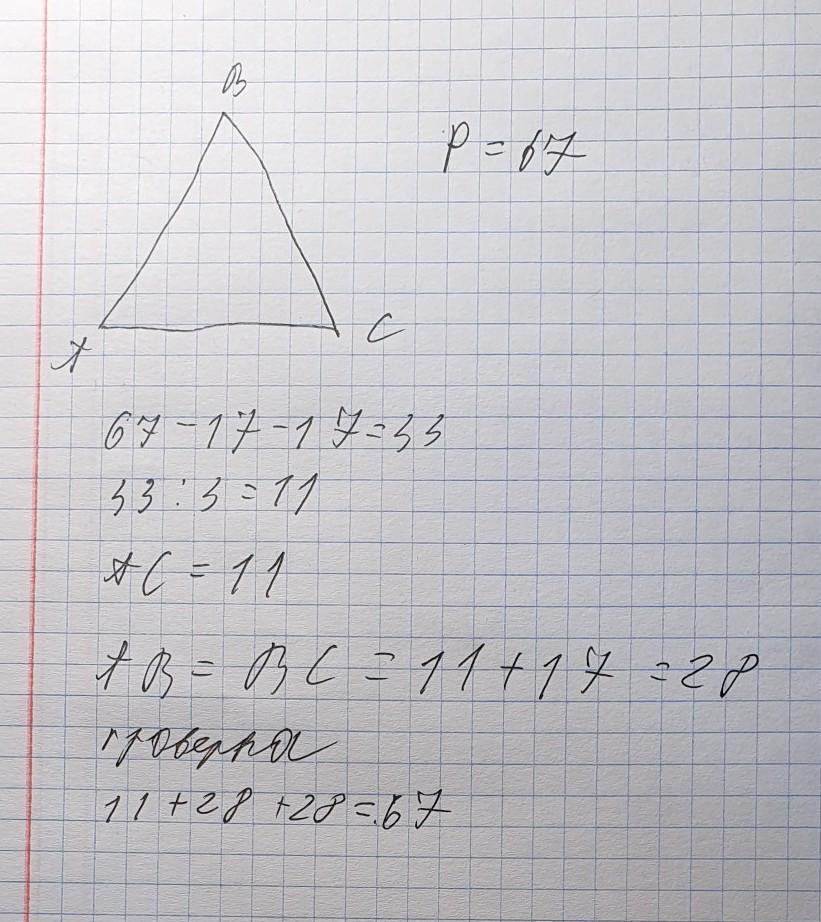 B
P = 67
A
C
67 - 17 - 17 = 33
33 : 3 = 11
AC = 11
AB = BC = 11 + 17 = 28
проверка
11 + 28 + 28 = 67